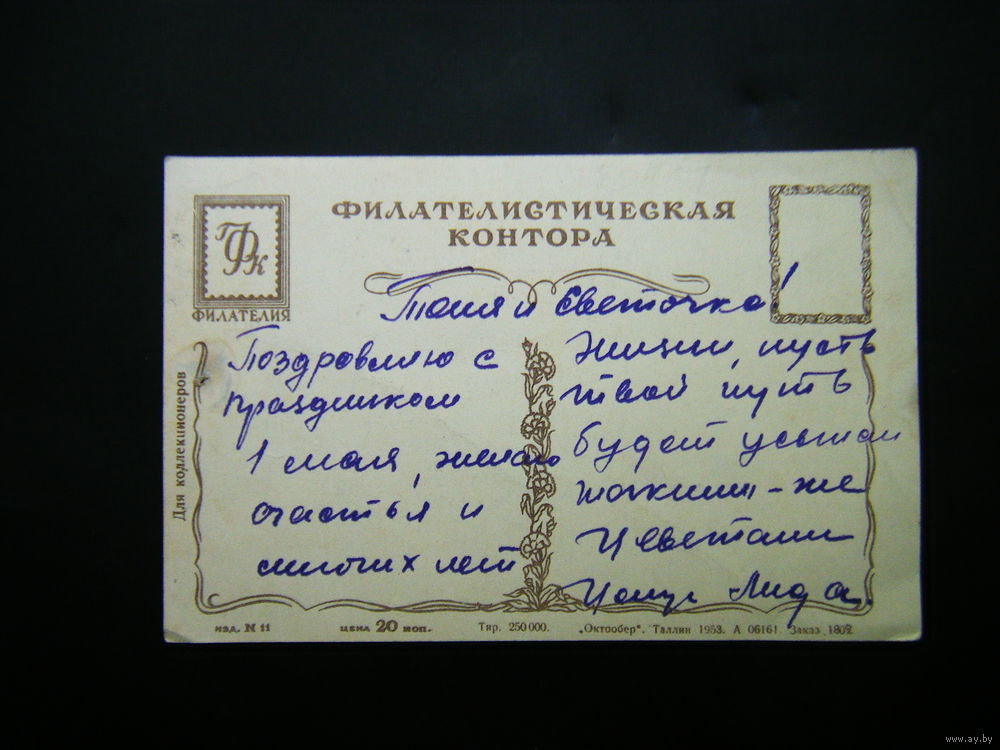 ФИЛАТЕЛИСТИЧЕСКАЯ
КОНТОРА
ФК
ФИЛАТЕЛИЯ
Для коллекционеров
Таня и Светочка!
Поздравляю с
праздником
1 мая, желаю
счастья и
многих лет
жизни, пусть
твой путь
будет усыпан
такими-же
цветами
Целую Лида.
изд. N 11
цена 20 коп.
Тир. 250 000.
„Октообер“. Таллин 1953. А 06161. Заказ 1802.
www.ay.by